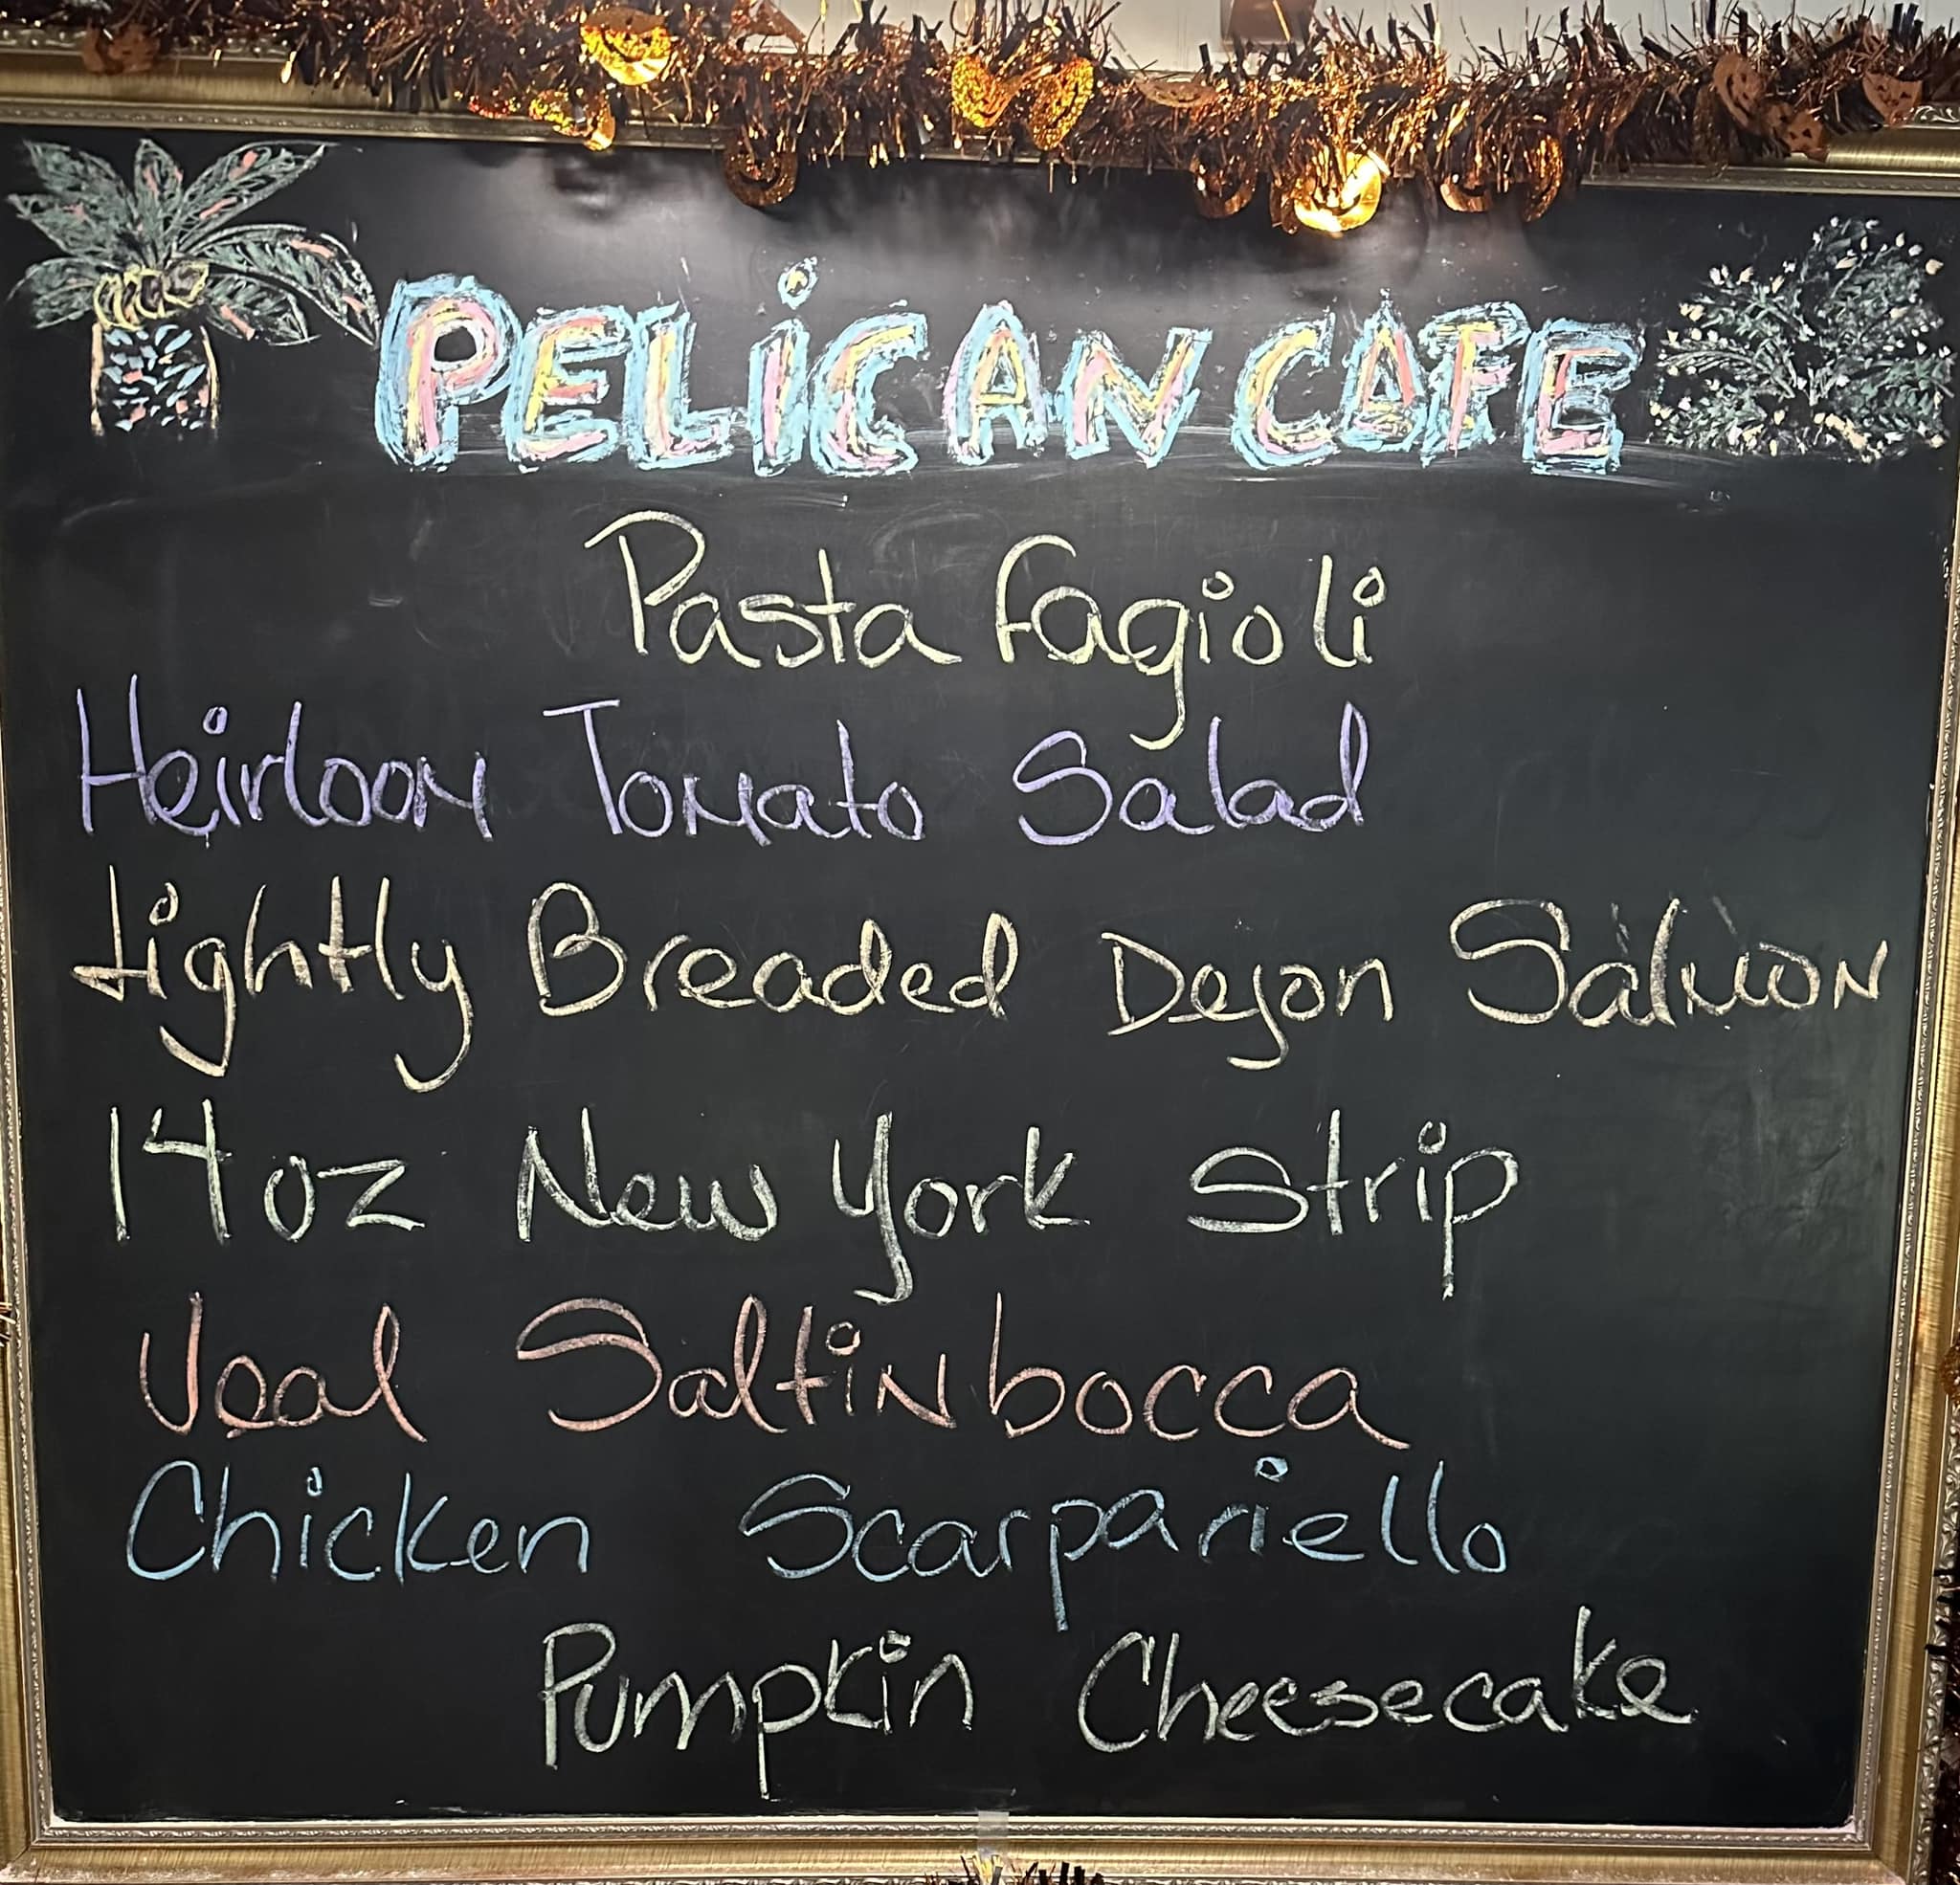 PELiCAN CAFE
Pasta fagioli
Heirloom Tomato Salad
Lightly Breaded Dejon Salmon
14oz New York Strip
Veal Saltinbocca
Chicken Scarpariello
Pumpkin Cheesecake